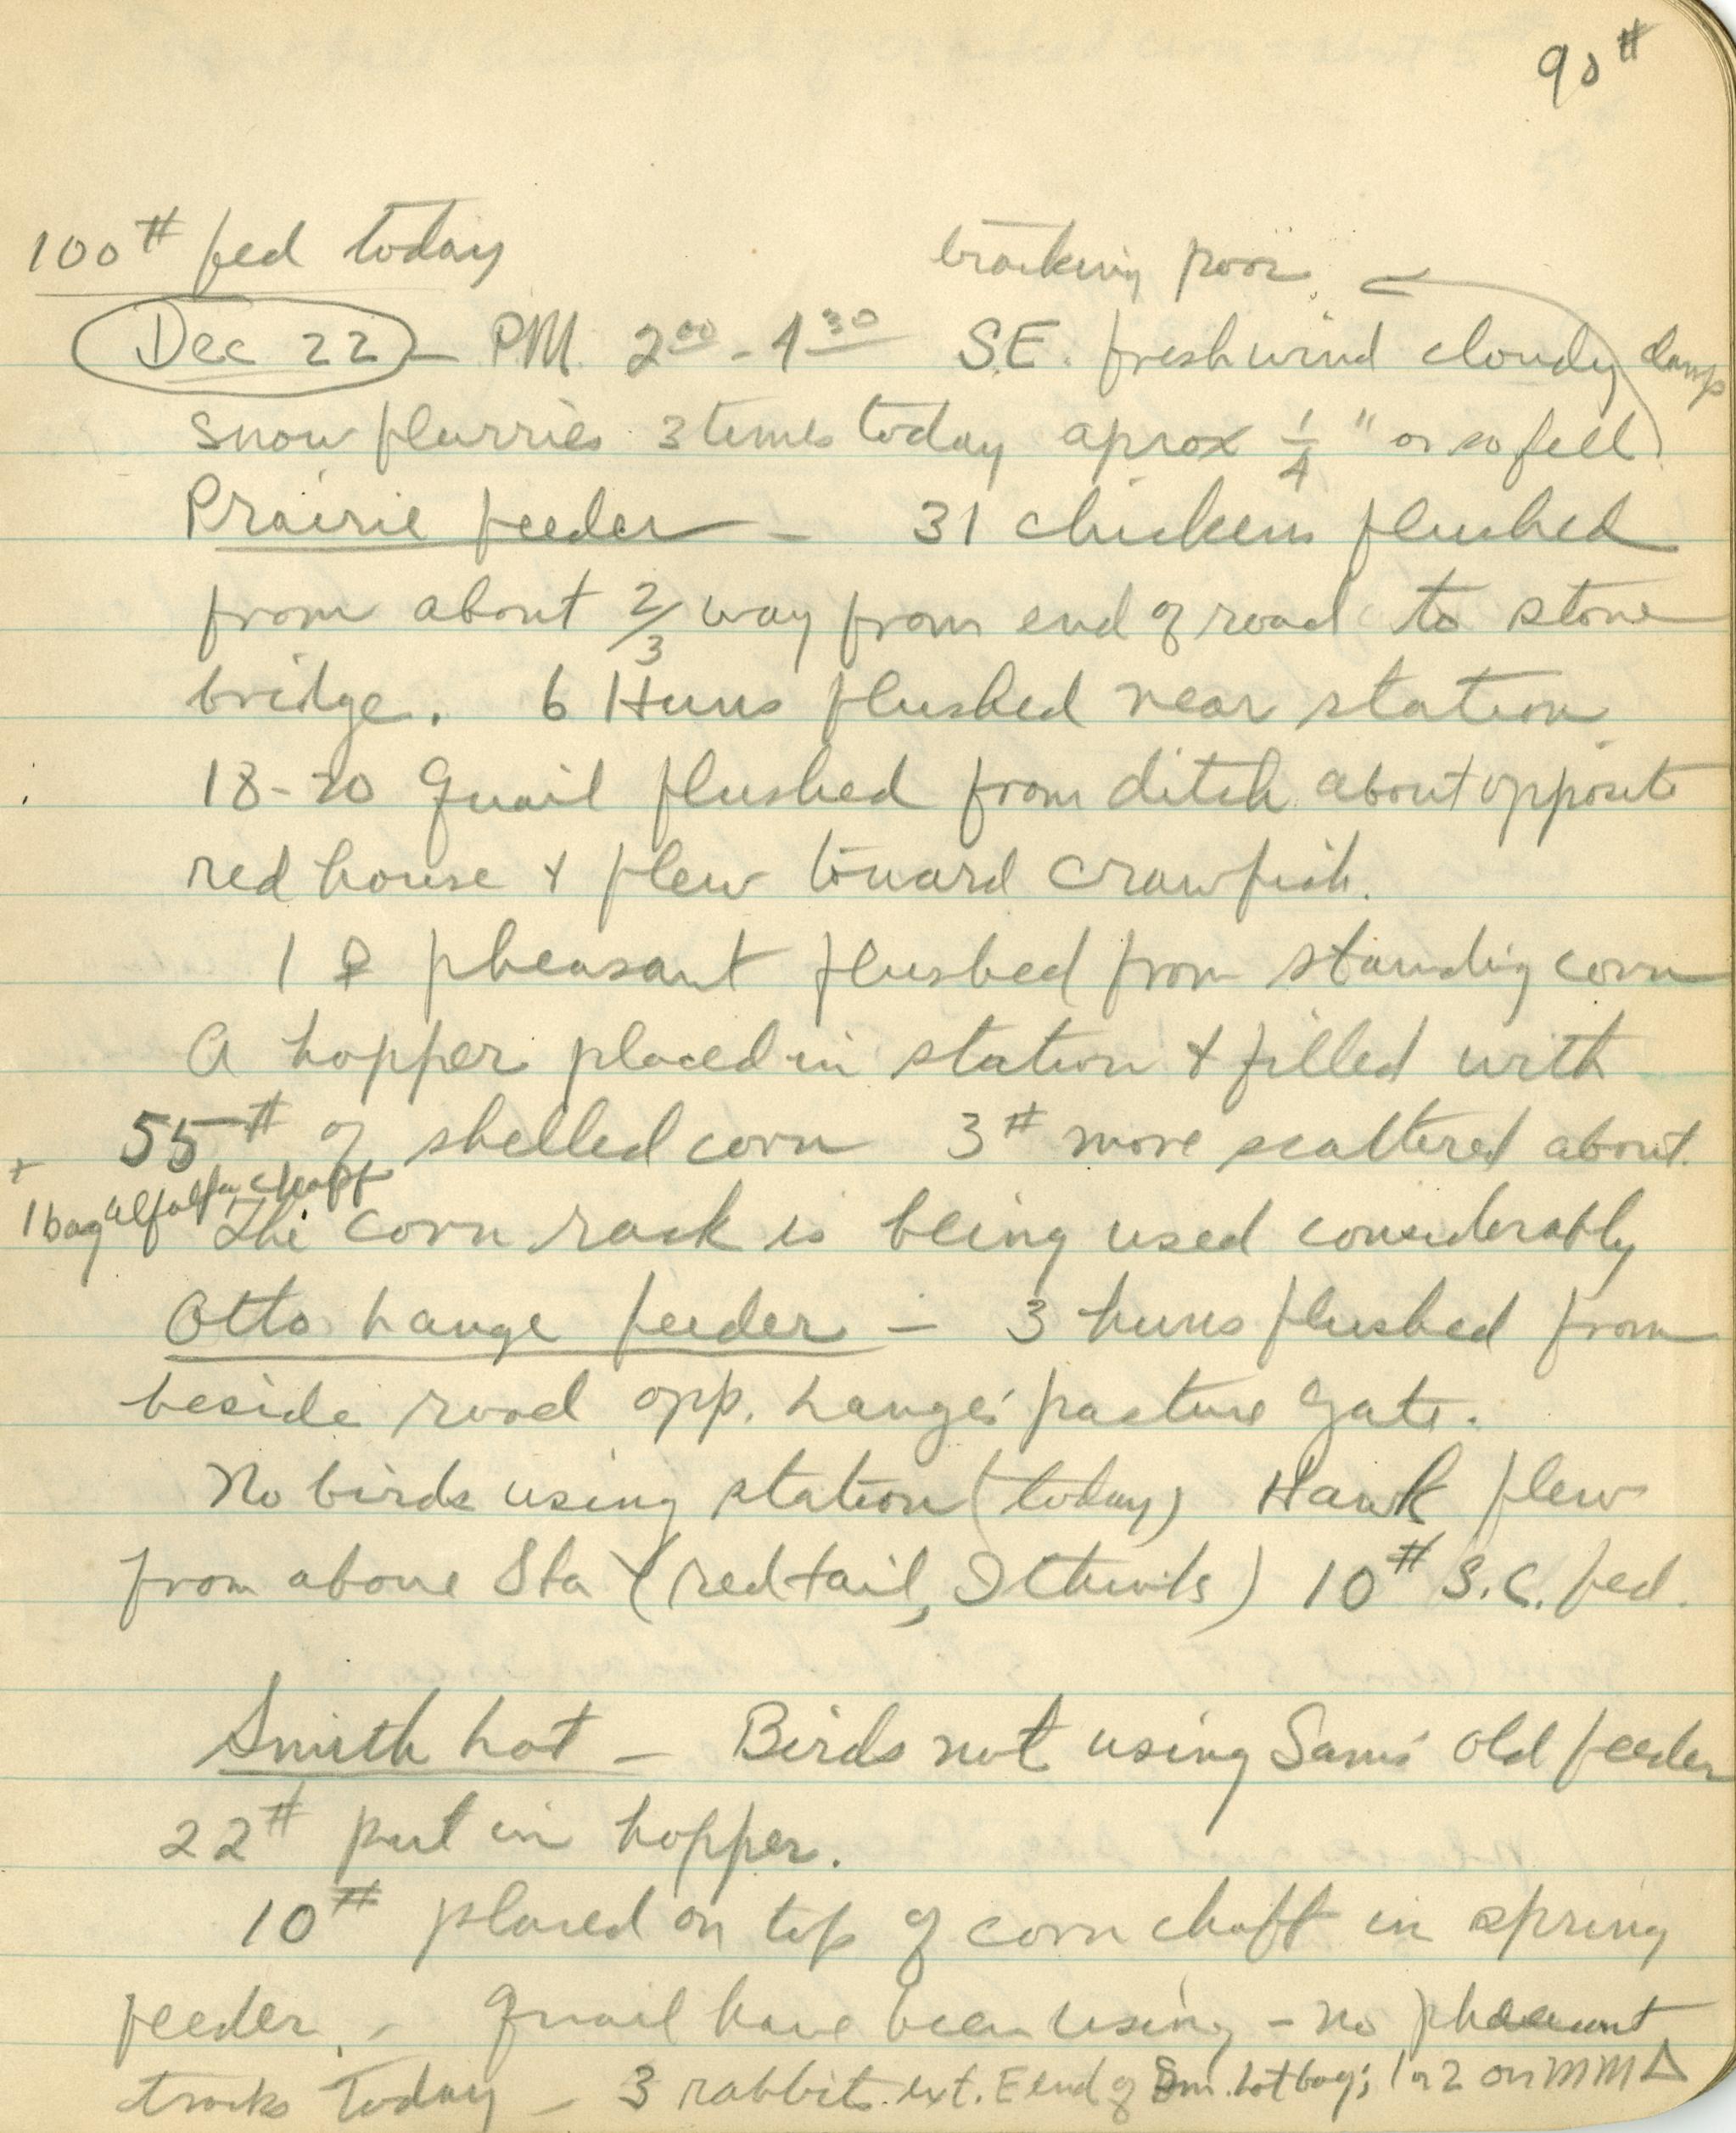 90#
100# fed today
tracking poor.
Dec 22 - PM. 2 00 - 4 30 S.E. fresh wind cloudy damp
snow flurries 3 times today aprox 1/4 " or so fell
Prairie feeder - 31 chickens flushed
from about 2/3 way from end of road to stone
bridge. 6 Huns flushed near station
18-20 Quail flushed from ditch about opposite
red house & flew toward Crawfish.
1 ♀ pheasant flushed from standing corn
A hopper placed in station & filled with
55# of shelled corn 3# more scattered about.
+ 1 bag alfalfa chaff
The corn rack is being used considerably
Otto Lange feeder - 3 huns flushed from
beside road opp. Lange's pasture gate.
No birds using station (today) Hawk flew
from above Sta (redtail, I think) 10# S.C. fed.
Smith Lot - Birds not using Sam's old feeder
22# put in hopper.
10# placed on top of corn chaff in spring
feeder. - Quail have been using - no pheasant
tracks today - 3 rabbits E end of Sm. Lot bog; 1 or 2 on MM Δ